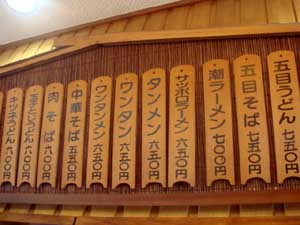 五目うどん 七五〇円
五目そば 七五〇円
潮ラーメン 七〇〇円
サッポロラーメン 八五〇円
タンメン 六五〇円
ワンタン 六五〇円
ワンタンメン 八五〇円
中華そば 六五〇円
肉そば 八〇〇円
玉子とじうどん 六〇〇円
キツネうどん 六〇〇円